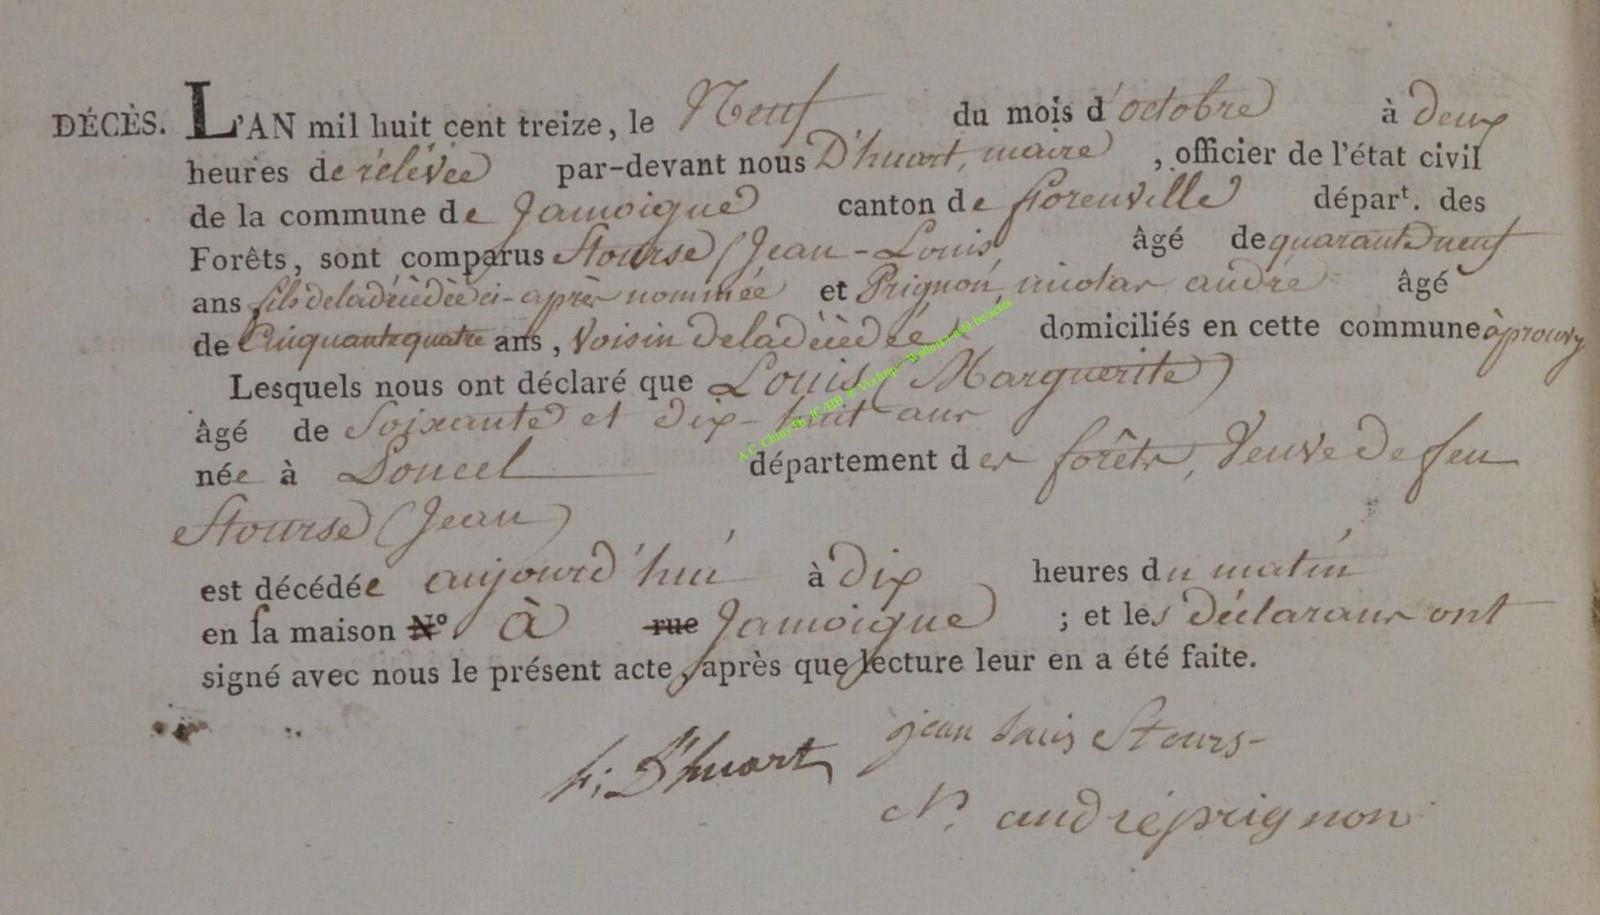 DÉCÈS. L'AN mil huit cent treize, le Neuf du mois d'octobre à deux
heures de rélévée par-devant nous D'huart, maire, officier de l'état civil
de la commune de Jamoigne canton de florenville départ. des
Forêts, sont comparus Stourse (Jean-Louis) âgé de quarante neuf
ans fils de la décèdèe ci-après nommée et Prignon, nicolas andré âgé
de Cinquante quatre ans, Voisin de la décèdée domiciliés en cette commune à prouvy
Lesquels nous ont déclaré que Louis (Marguerite)
âgé de Soixante et dix-huit ans
née à département des forêts, Veuve de feu
Stourse (Jean)
est décédée aujourd'hui à dix heures du matin
en sa maison N° à rue Jamoigne ; et les déclarans ont
signé avec nous le présent acte, après que lecture leur en a été faite.
D'huart
jean Stours
N. andré prignon